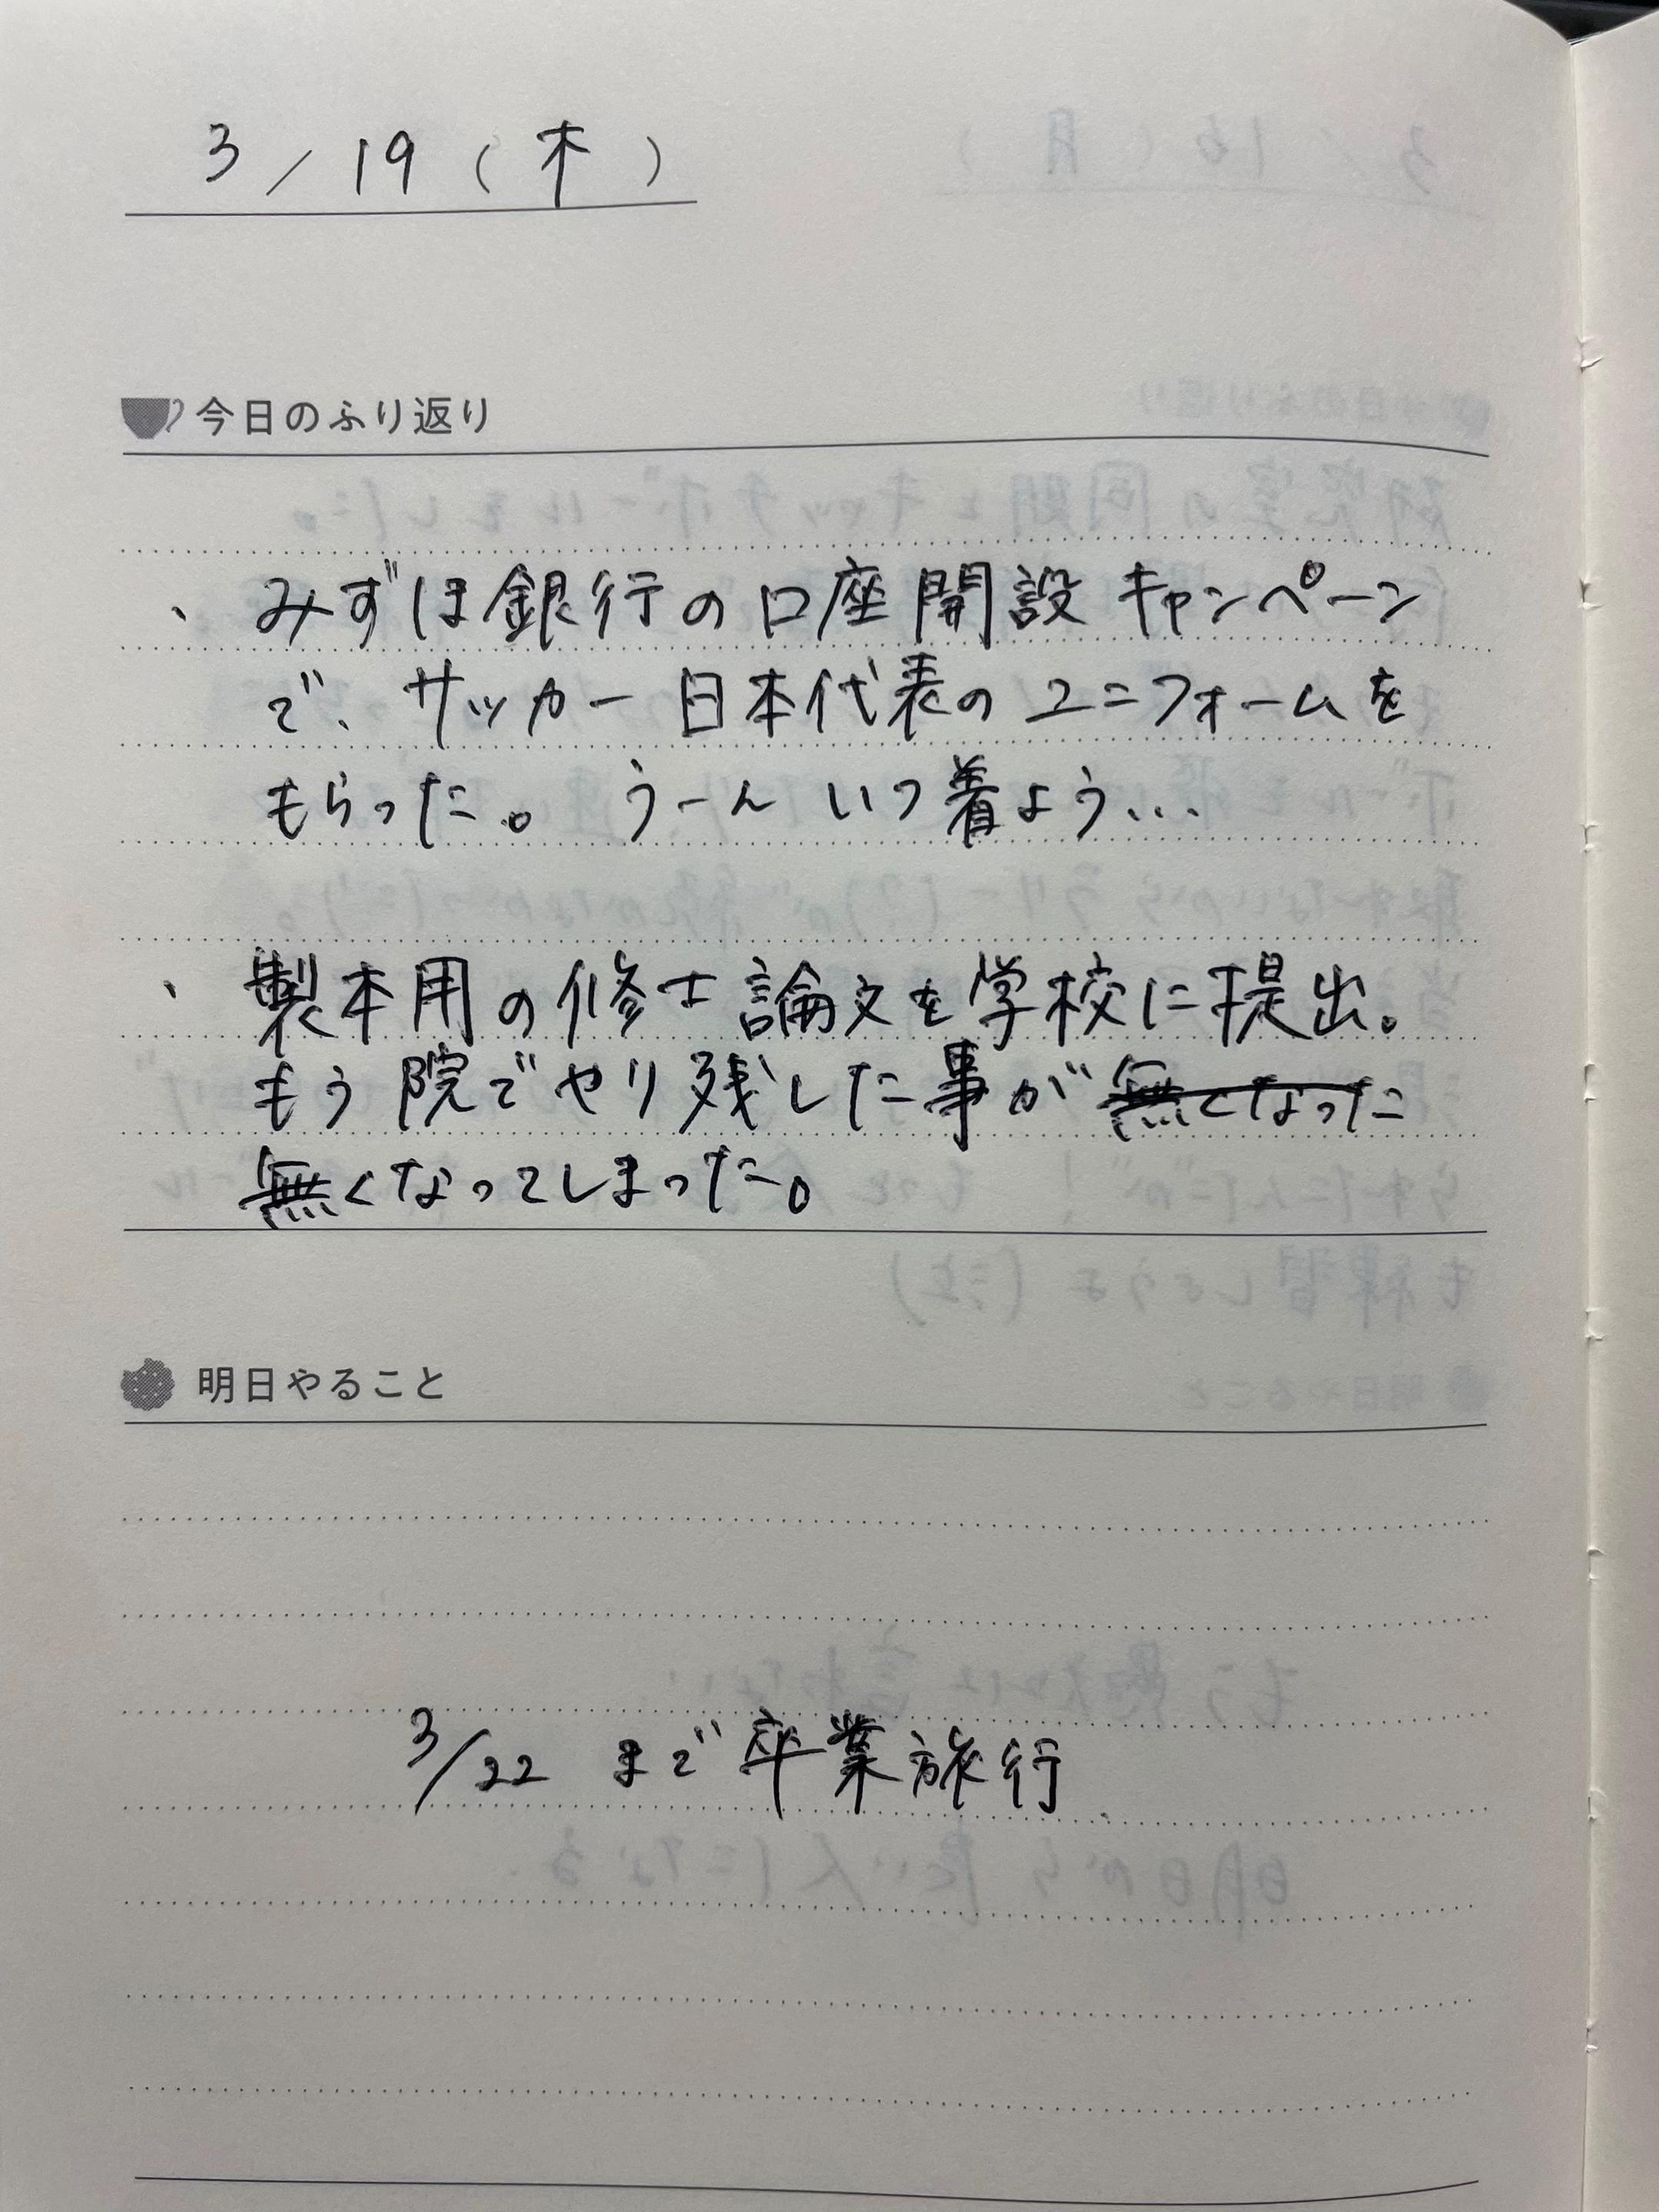 3/19(木)
今日のふり返り
、みずほ銀行の口座開設キャンペーン
で、サッカー日本代表のユニフォームを
もらった。 うーん いつ着よう...
、製本用の修士論文を学校に提出。
もう院でやり残した事が無くなった
無くなってしまった。
明日やること
3/22 まで卒業旅行